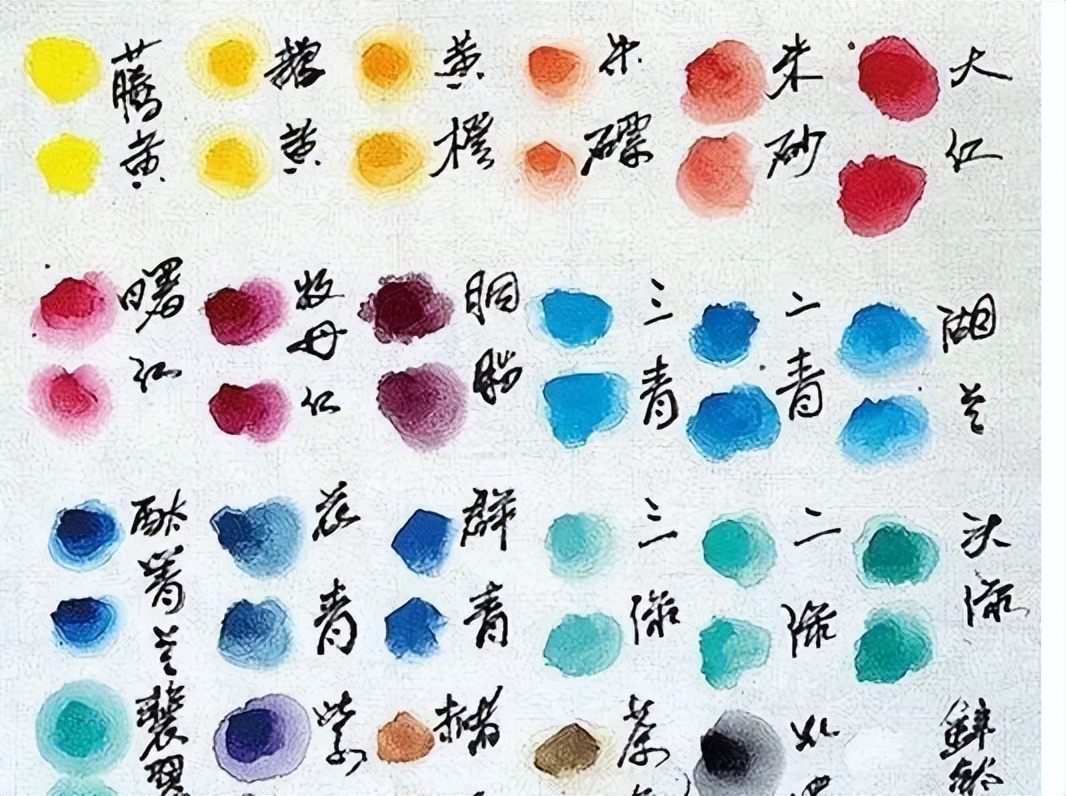 藤黄
鹅黄
黄橙
朱磦
朱砂
大红
曙红
牧丹红
胭脂
三青
二青
湖兰
酞菁兰
花青
群青
三绿
二绿
头绿
翡翠
紫
赭
茶